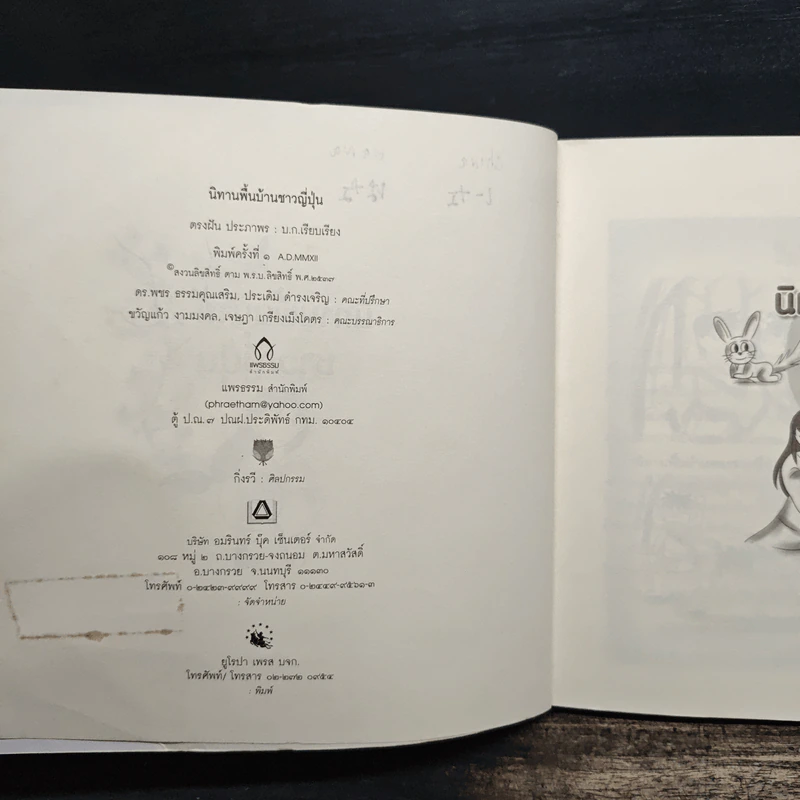 นิทานพื้นบ้านชาวญี่ปุ่น
ตรงฝัน ประภาพร : บ.ก.เรียบเรียง
พิมพ์ครั้งที่ ๑ A.D.MMXII
©สงวนลิขสิทธิ์ ตาม พ.ร.บ.ลิขสิทธิ์ พ.ศ.๒๕๓๗
ดร.พชร ธรรมคุณเสริม, ประเดิม ดำรงเจริญ : คณะที่ปรึกษา
ขวัญแก้ว งามมงคล, เจษฎา เกรียงเม็งโคตร : คณะบรรณาธิการ
แพรธรรม
สำนักพิมพ์
แพรธรรม สำนักพิมพ์
(phraetham@yahoo.com)
ตู้ ป.ณ.๗ ปณฝ.ประดิพัทธ์ กทม. ๑๐๔๐๔
กิ่งรวี : ศิลปกรรม
บริษัท อมรินทร์ บุ๊ค เซ็นเตอร์ จำกัด
๑๐๘ หมู่ ๒ ถ.บางกรวย-จงถนอม ต.มหาสวัสดิ์
อ.บางกรวย จ.นนทบุรี ๑๑๑๓๐
โทรศัพท์ ๐-๒๔๒๓-๙๙๙๙ โทรสาร ๐-๒๔๔๙-๙๕๖๑-๓
: จัดจำหน่าย
ยูโรปา เพรส บจก.
โทรศัพท์/ โทรสาร ๐๒-๒๗๒ ๐๙๕๔
: พิมพ์